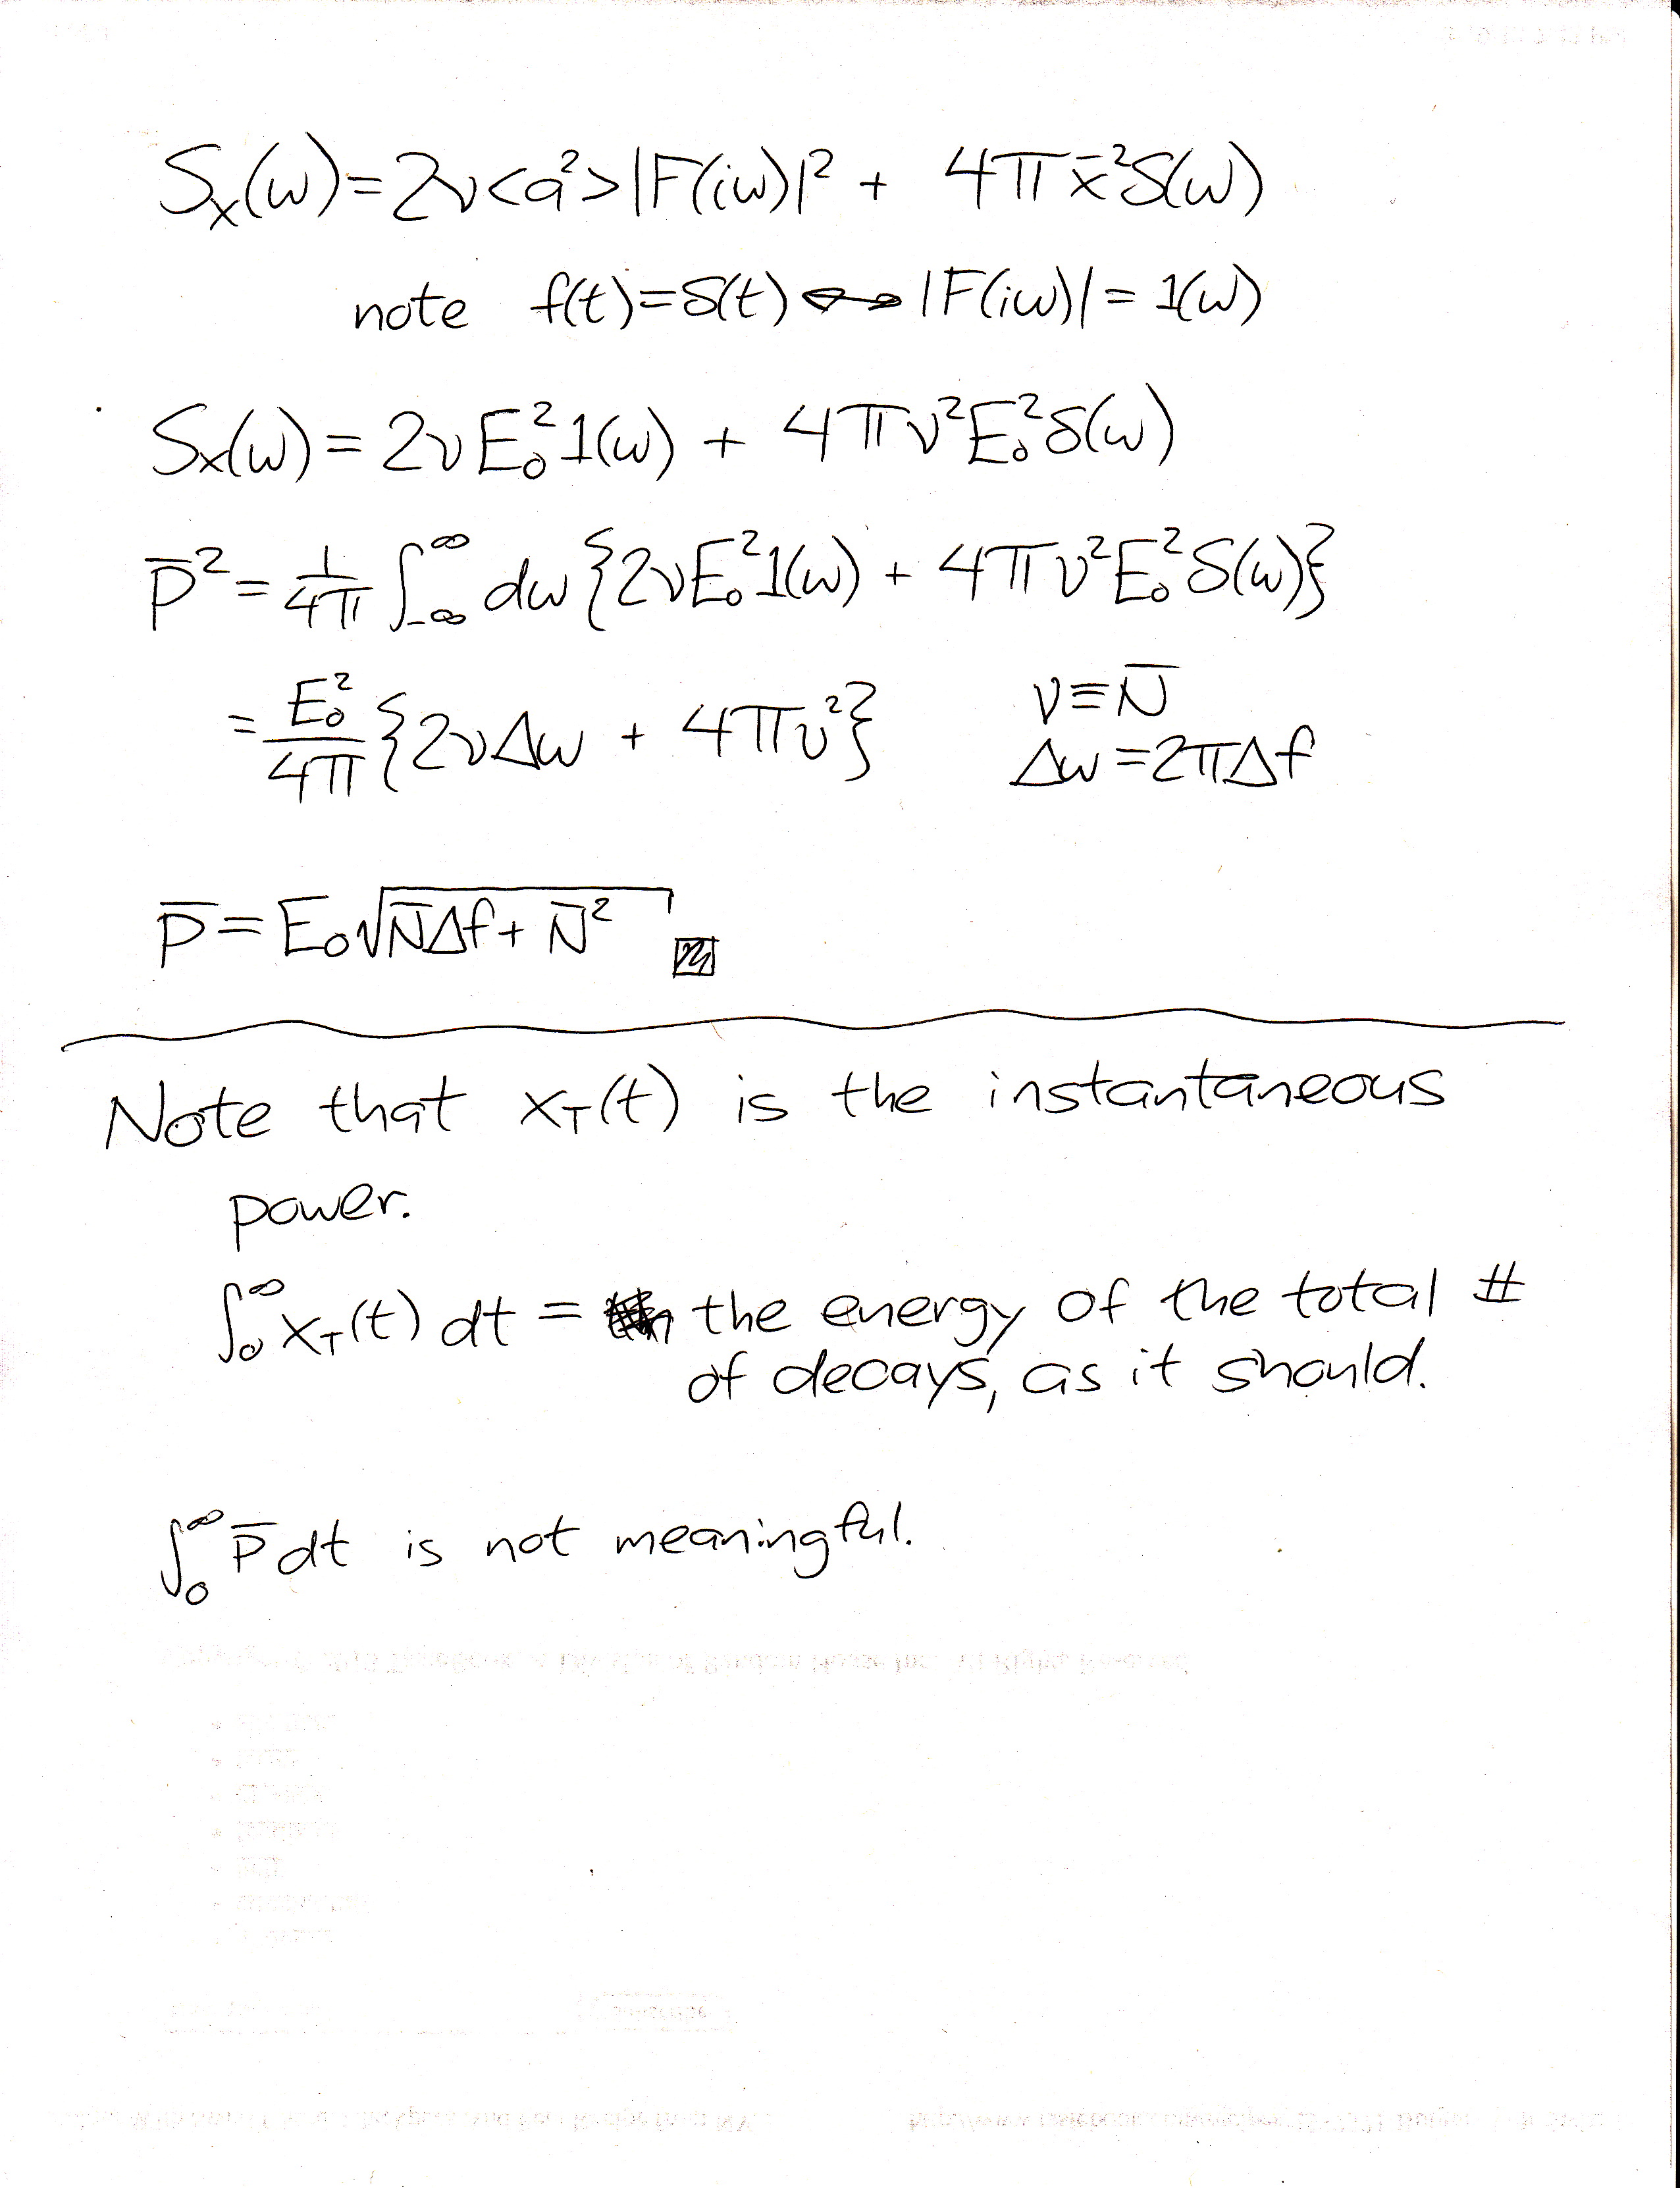 Sₓ(ω) = 2ν<a²>|F(iω)|² + 4π x̄² δ(ω)
note f(t)=δ(t) ↔ |F(iω)| = 1(ω)
Sₓ(ω) = 2νE₀²1(ω) + 4πν²E₀²δ(ω)
P̄² = 1/4π ∫_{-∞}^{∞} dω {2νE₀²1(ω) + 4πν²E₀²δ(ω)}
= E₀²/4π {2νΔω + 4πν²} ν≡N̄
Δω = 2πΔf
P̄ = E₀√(N̄Δf + N̄²)
Note that x_T(t) is the instantaneous
power.
∫₀^∞ x_T(t) dt = the energy of the total #
of decays, as it should.
∫₀^∞ P̄ dt is not meaningful.